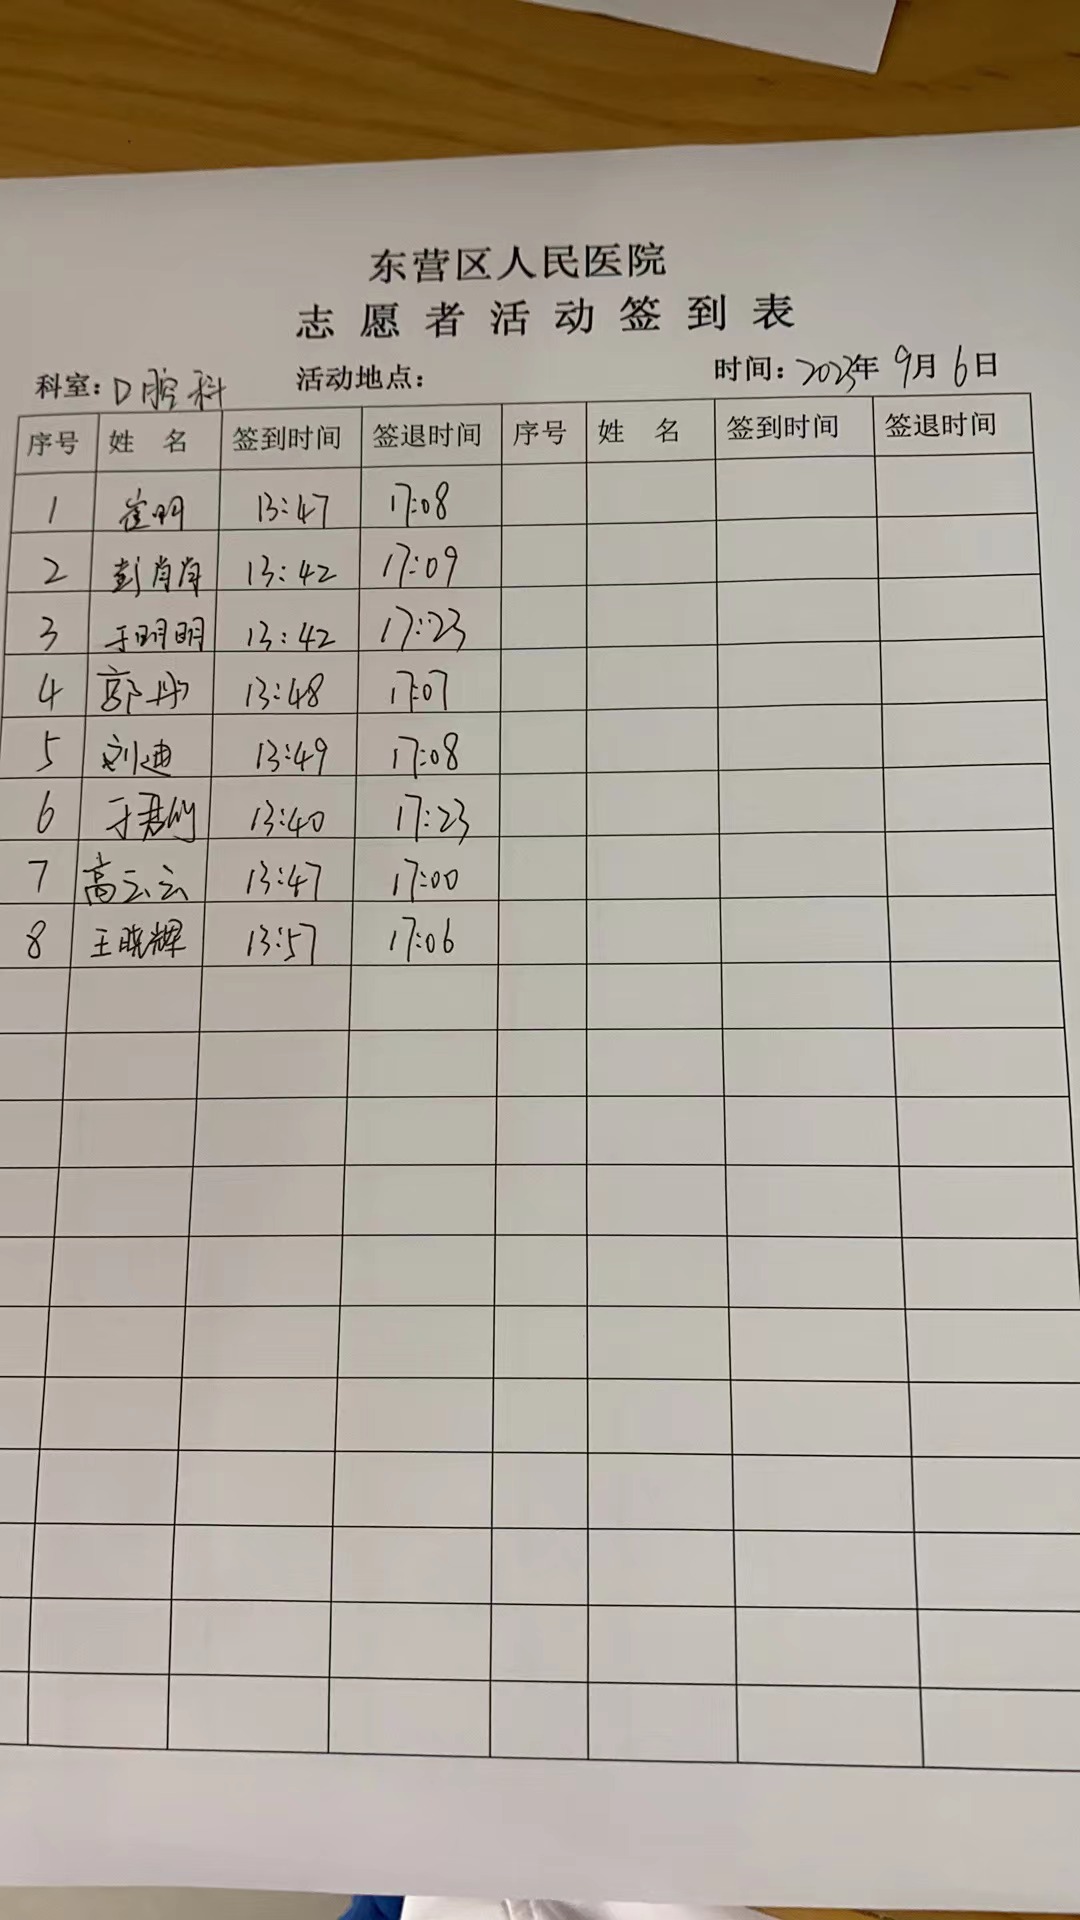 东营区人民医院
志愿者活动签到表
科室：口腔科 活动地点： 时间：2023年9月6日
序号 姓名 签到时间 签退时间 序号 姓名 签到时间 签退时间
1 崔明 13:47 17:08
2 彭肖肖 13:42 17:09
3 于明明 13:42 17:23
4 郭丹 13:48 17:07
5 刘迪 13:49 17:08
6 于君 13:40 17:23
7 高云云 13:47 17:00
8 王晓辉 13:57 17:06